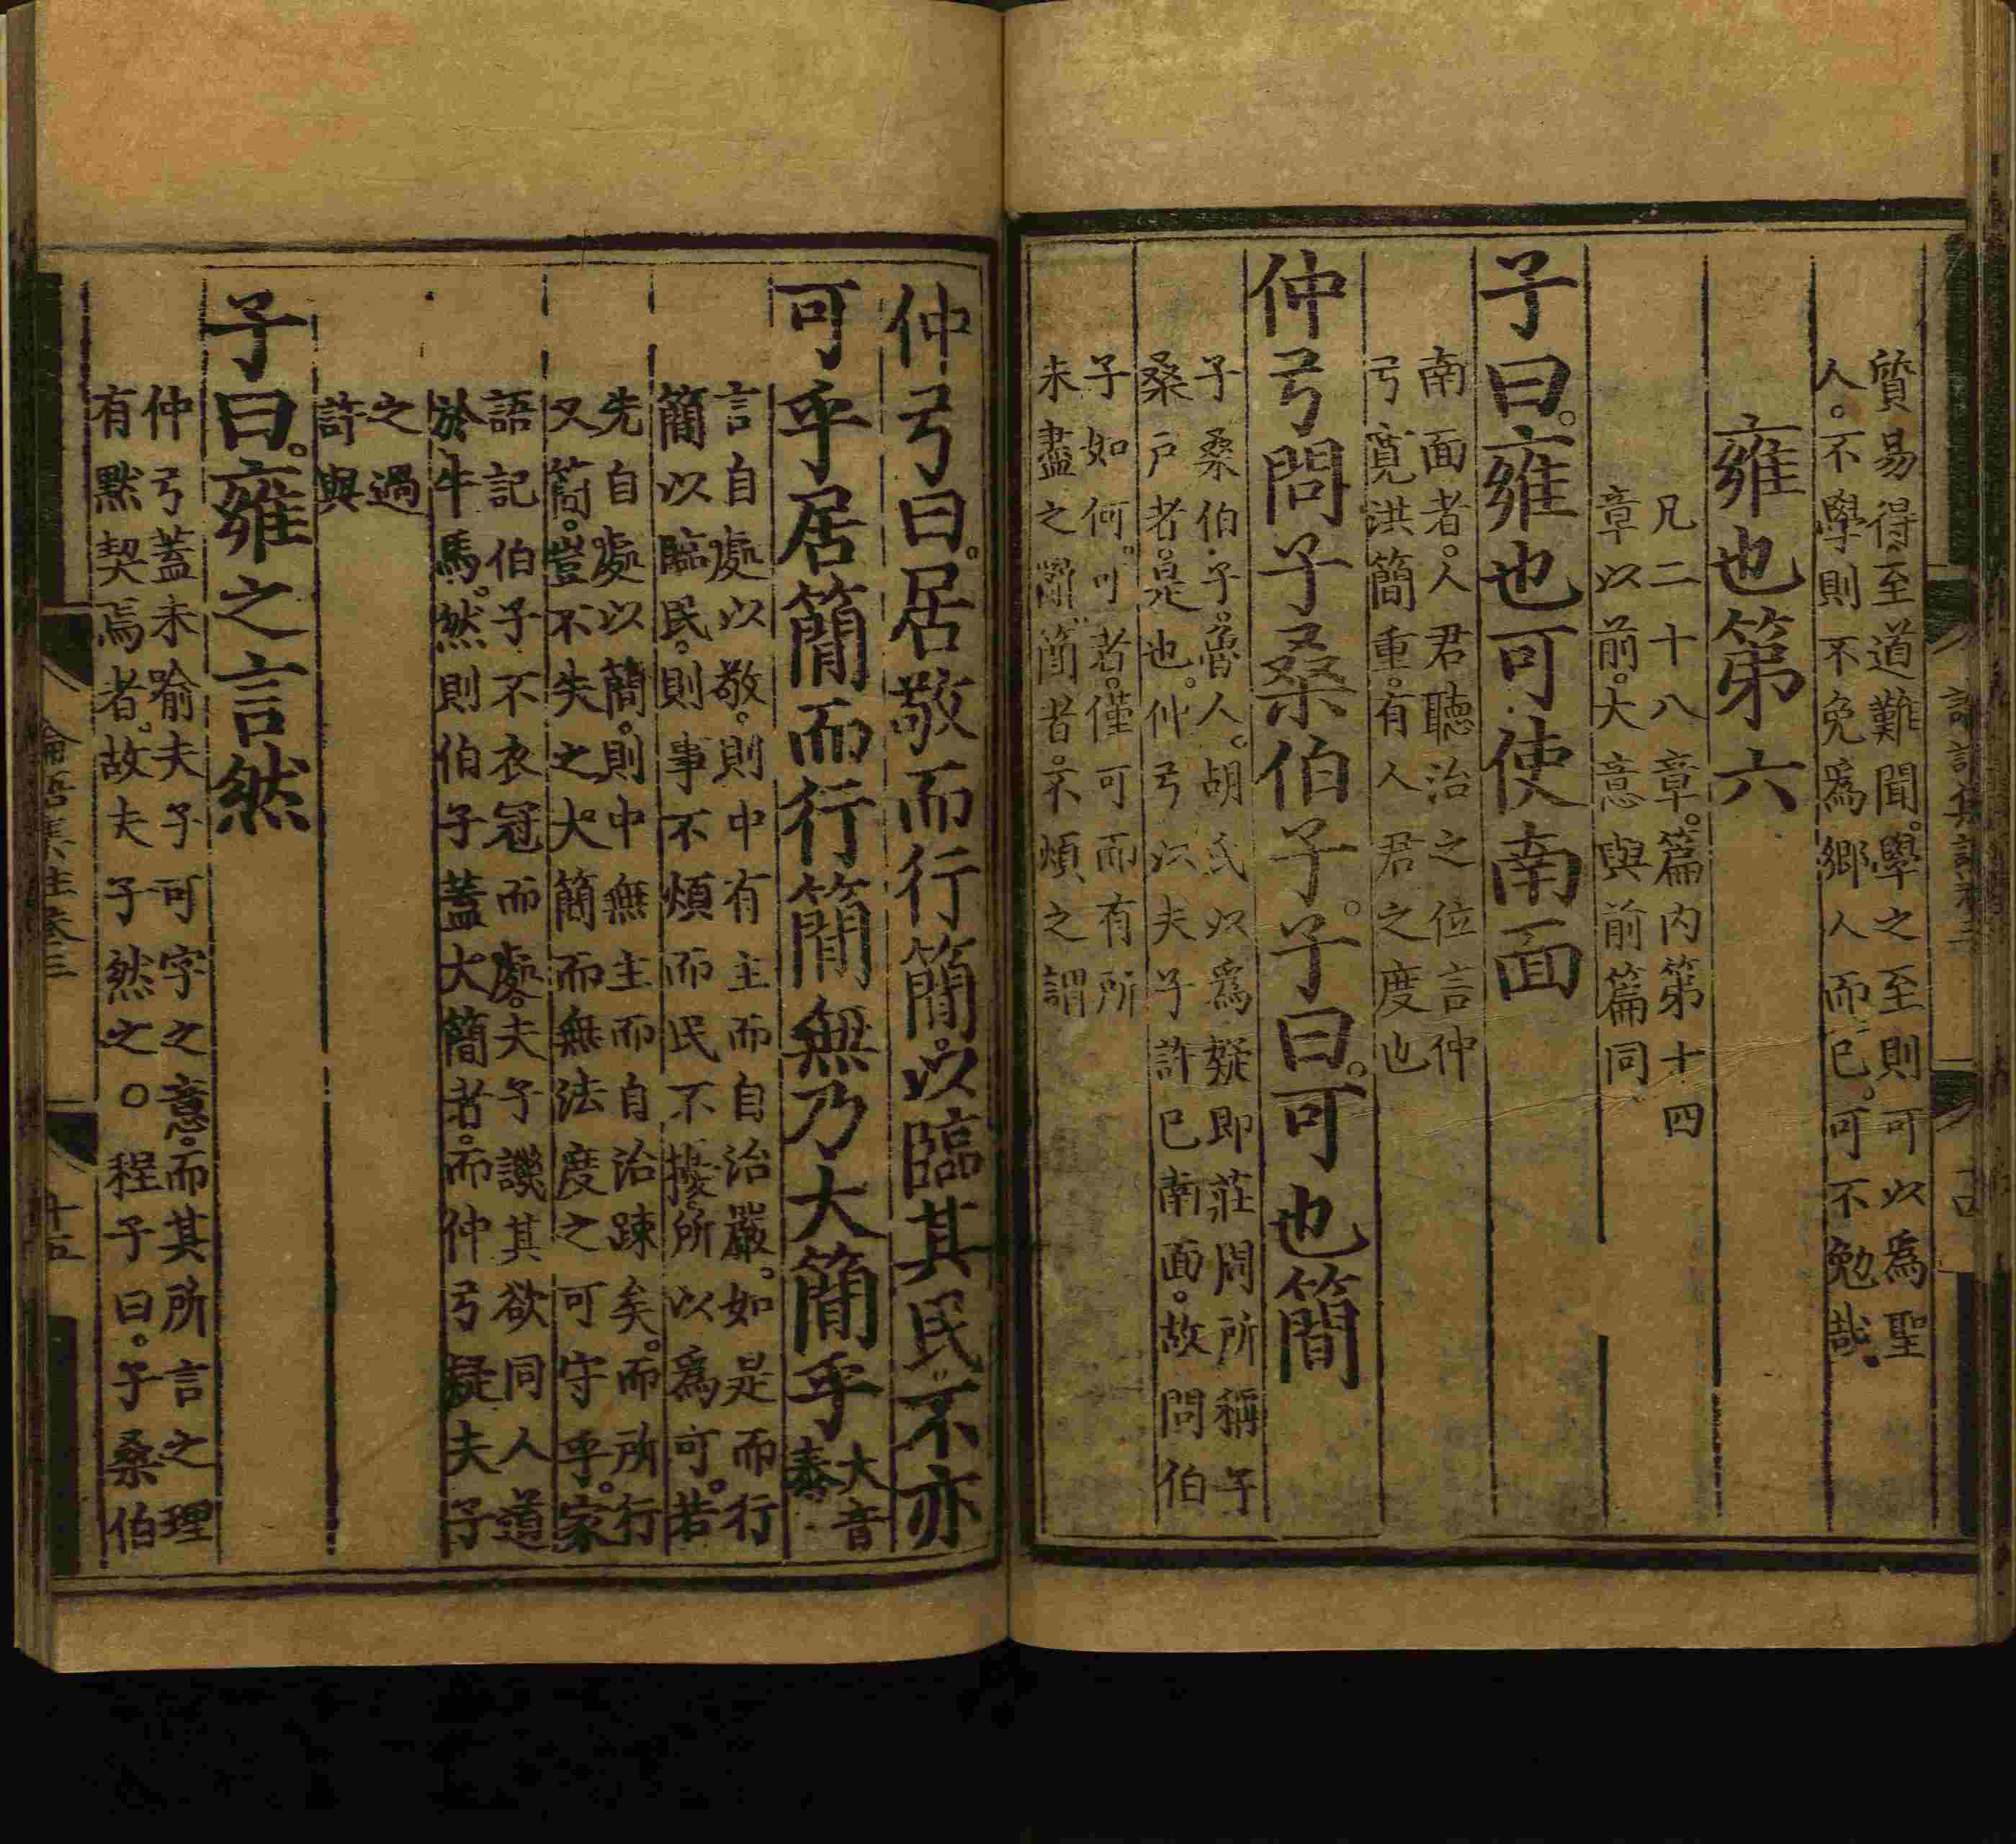 質易得。至道難聞。學之至則可以爲聖
人。不學則不免爲鄉人而已。可不勉哉
雍也第六
凡二十八章。篇内第十四
章以前。大意與前篇同
子曰。雍也可使南面
南面者。人君聽治之位言仲
弓寬洪簡重。有人君之度也
仲弓問子桑伯子。子曰。可也簡
子桑伯子。魯人。胡氏以爲疑即莊周所稱子
桑戶者。是也。仲弓以夫子許己南面。故問伯
子如何。可者。僅可而有所
未盡之辭。簡者。不煩之謂
仲弓曰。居敬而行簡。以臨其民。不亦
可乎居簡而行簡無乃大簡乎
大音
泰
言自處以敬。則中有主而自治嚴。如是而行
簡以臨民。則事不煩而民不擾。所以爲可。若
先自處以簡。則中無主而自治踈矣。而所行
又簡。豈不失之大簡而無法度之可守乎。家
語記伯子不衣冠而處。夫子譏其欲同人道
於牛馬。然則伯子蓋大簡者。而仲弓疑夫子
之過
許與
子曰。雍之言然
仲弓蓋未喻夫子可字之意。而其所言之理
有默契焉者。故夫子然之。○程子曰。子桑伯
論語集註卷三
十五